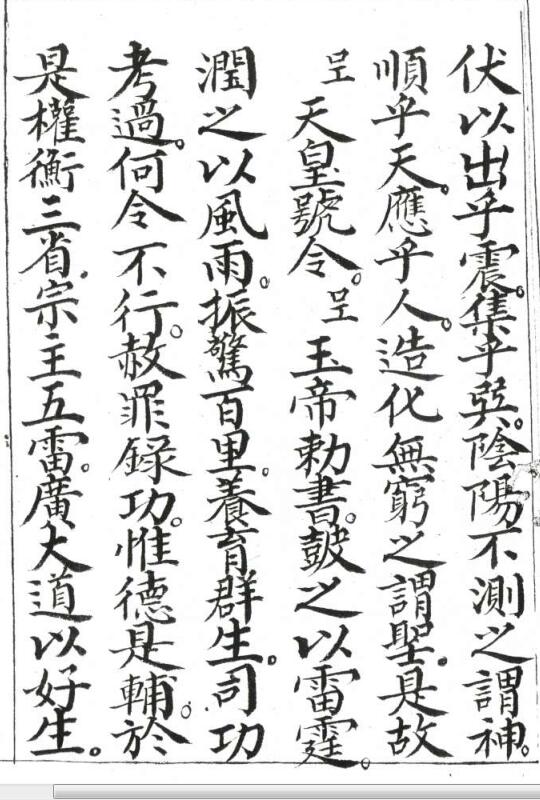 伏以出乎震。集乎巽。陰陽不測之謂神。
順乎天。應乎人。造化無窮之謂聖。是故
呈天皇號令。呈玉帝勅書。鼓之以雷霆。
潤之以風雨。振驚百里。養育群生。司功
考過。何令不行。赦罪錄功。惟德是輔。於
是權衡三省。宗主五雷。廣大道以好生。